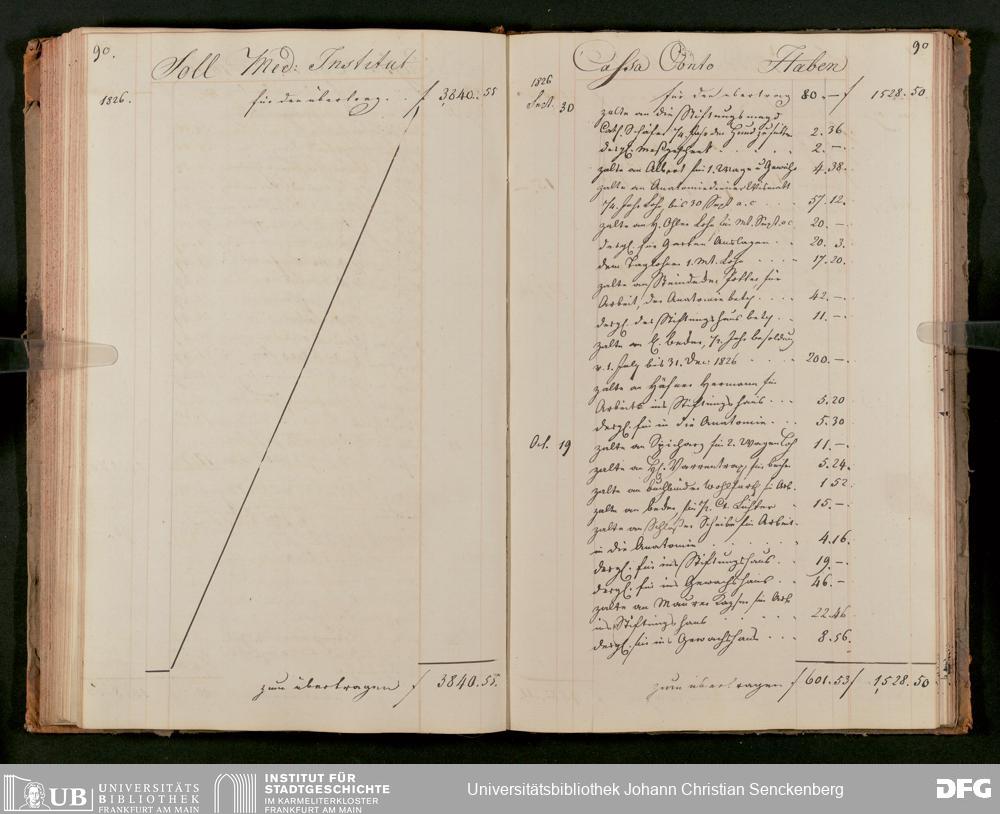 90.
Soll Med: Institut
1826.
für den übertrag . . f 3,840. 55
zum übertragen f 3840. 55.
90
Cassa Conto Haben
1826
Sept. 30
für den übertrag 80. — f 1528. 50
zalte an die Stiftungsmagd
Cath. Schäfer 1/4 Jahr den Hund zu füttern 2. 36
desgl. Meßgeschenk . . . . 2. —
zalte an Albert für 1. Wage u Gewicht 4. 38.
zalte an Anatomiediener
1/4 Jahr Lohn bis 30 Sept a. c . . . 57. 12.
zalte an H. Ohler Lohn für Mt. Sept. a c 20. —
desgl. für Garten Auslagen . . 20. 3.
dem Taglöhner 1. Mt. Lohn . . . . 17. 20.
zalte an Steindecker für
Arbeit, der Anatomie betrf. . . . 42. —
desgl. des Stiftungshaus betrf . . 11. —
zalte an 1/2 Jahr besoldung
v. 1. July bis 31. Dec: 1826 . . . 200. —
zalte an Häfner Hermann für
Arbeit ins Stiftungshaus . . . 5. 20
desgl. für in die Anatomie . . 5. 30
Oct. 19
zalte an für 2. Wagen Loh 11. —
zalte an H. Varrentrapp für 5. 24.
zalte an buchbinder Wohlfarth für Arb. 1 52.
zalte an für 1/2 Ct. Lichter . 15. —
zalte an Schlosser Scheibe für Arbeit
in die Anatomie . . . . . 4. 16.
desgl. für ins Stiftungshaus . . 19. —
desgl. für ins Gewächshaus . . 46. —
zalte an Maurer für Arb
ins Stiftungshaus . . . . . 22. 46
desgl. für ins Gewächshaus . . . 8. 56.
zum übertragen f 601. 53 f 1,528. 50
UB UNIVERSITÄTS
BIBLIOTHEK
FRANKFURT AM MAIN
INSTITUT FÜR
STADTGESCHICHTE
IM KARMELITERKLOSTER
FRANKFURT AM MAIN
Universitätsbibliothek Johann Christian Senckenberg
DFG